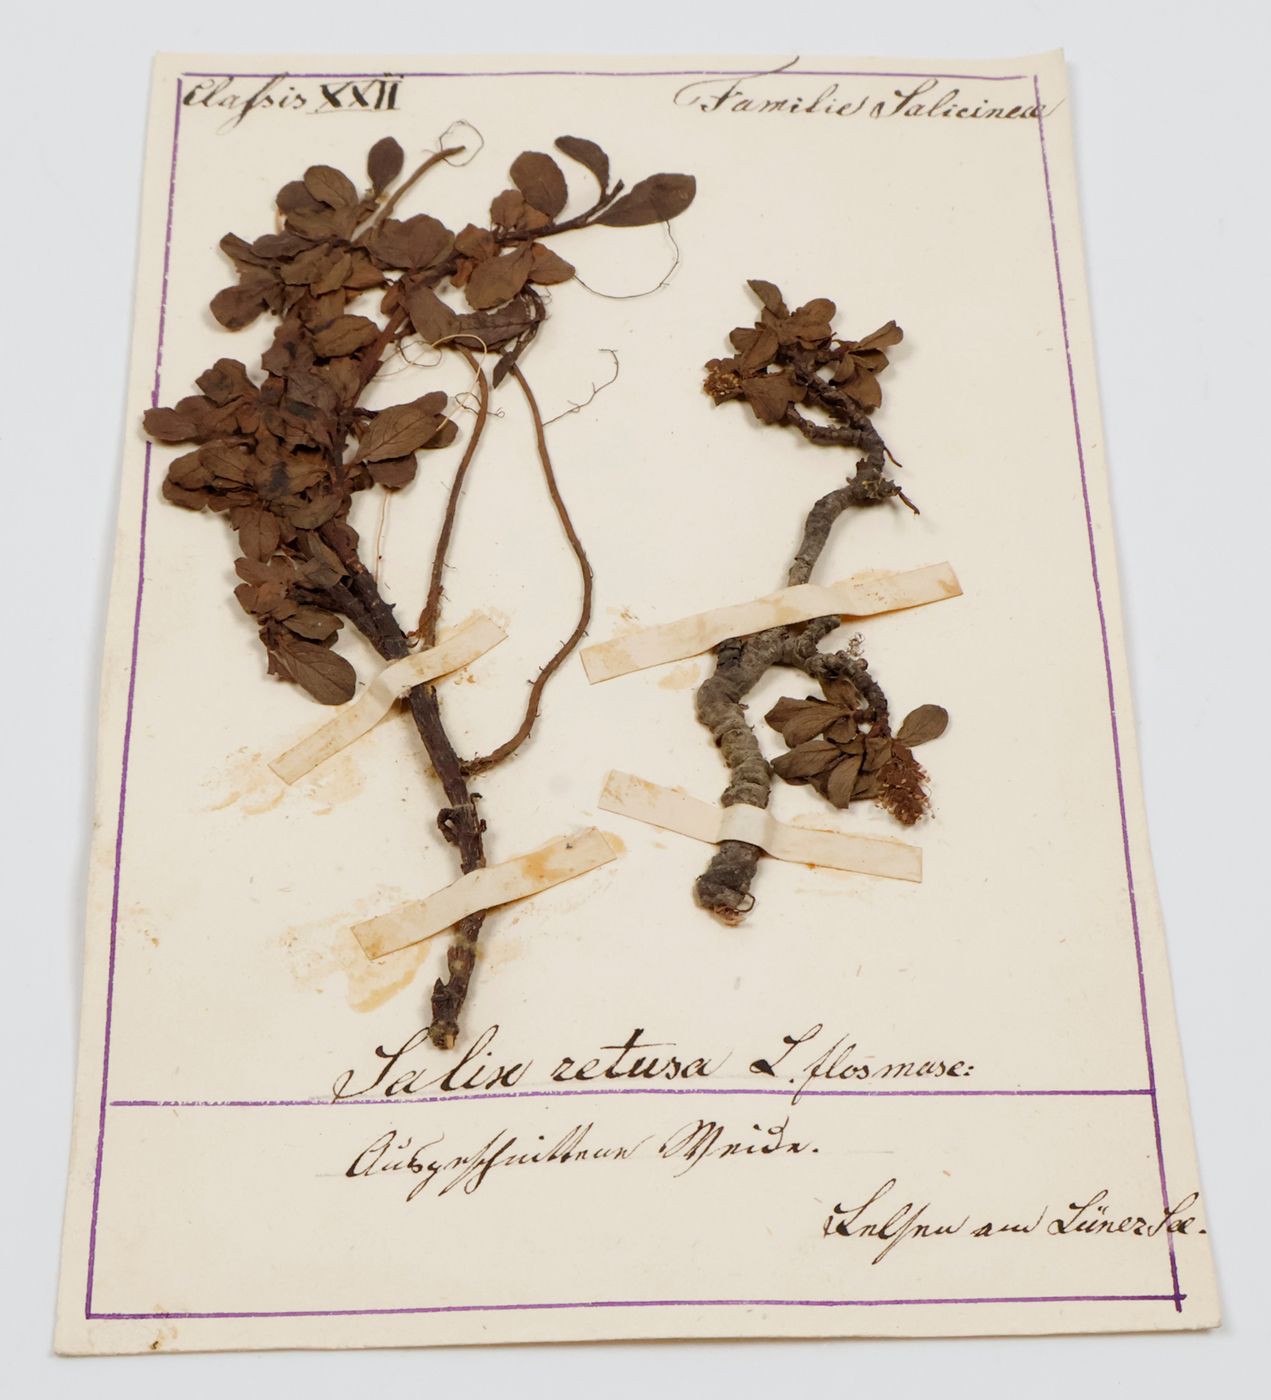 Classis XXII
Familie Salicineæ
Salix retusa L. flos masc:
Ausgeschnittene Weide.
Felsen am Lüner See.